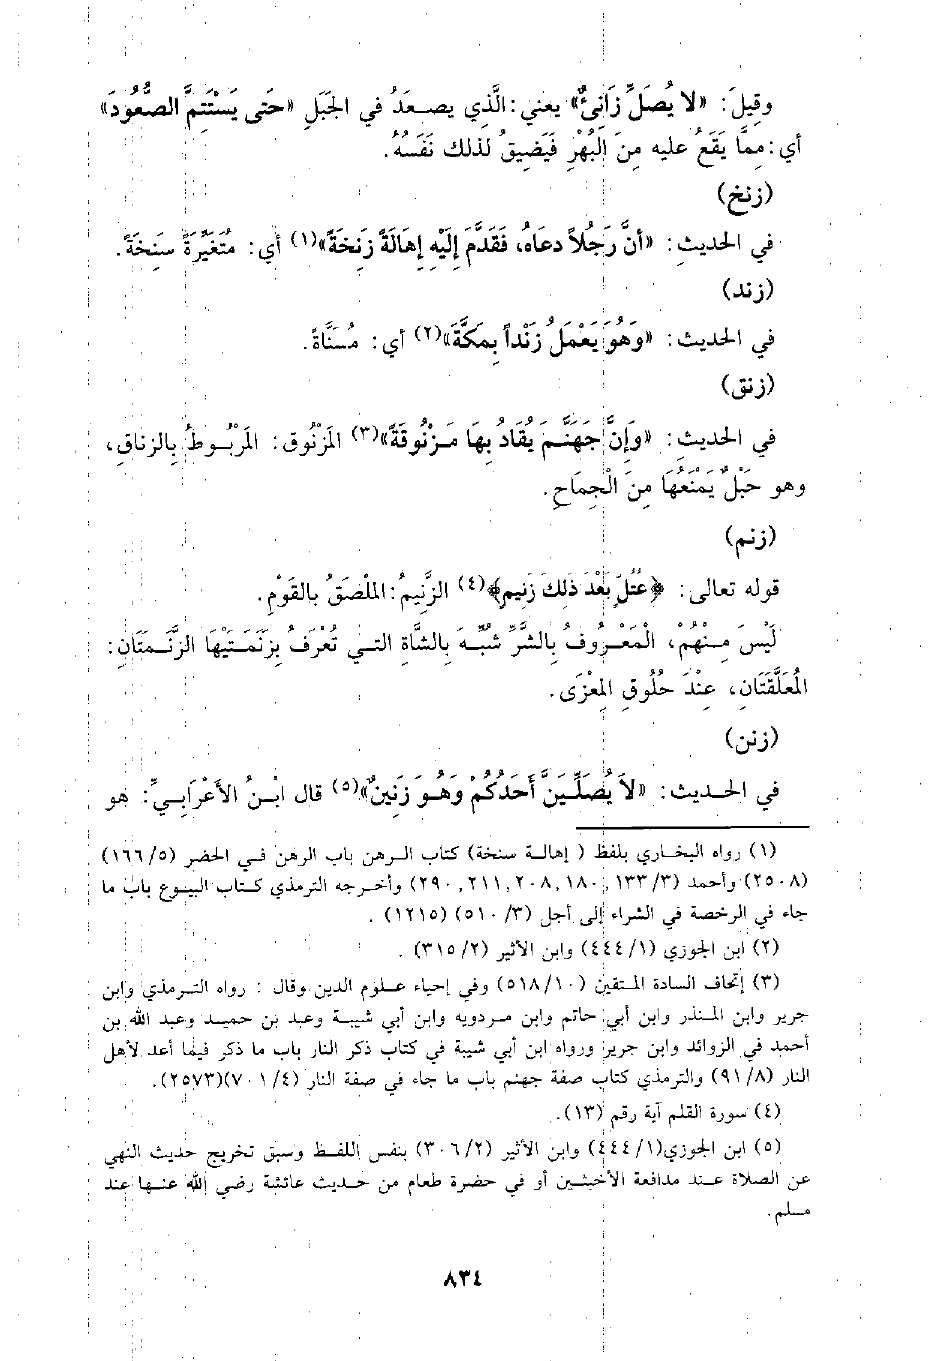 وقيلَ: «لا يُصَلِّ زَانِئٌ» يعني: الَّذي يصعَدُ في الجَبَلِ «حَتى يَسْتَتِمَّ الصُّعُودَ»
أي: مِمَّا يَقَعُ عليه مِنَ البُهْرِ فَيَضِيقُ لذلك نَفَسُهُ.
(زنخ)
في الحديثِ: «أنَّ رَجُلاً دعَاهُ، فَقَدَّمَ إِلَيْهِ إهَالَةً زَنِخَةً»(١) أي: مُتَغَيِّرَةً سَنِخَةً.
(زند)
في الحديثِ: «وَهُوَ يَعْمَلُ زَنْداً بِمَكَّةَ»(٢) أي: مُسَنَّاةً.
(زنق)
في الحديثِ: «وَإِنَّ جَهَنَّمَ يُقَادُ بِهَا مَزْنُوقَةً»(٣) المَزْنُوق: المَرْبُوطُ بِالزناقِ،
وهو حَبْلٌ يَمْنَعُهَا مِنَ الْجِمَاحِ.
(زنم)
قوله تعالى: ﴿عُتُلٍّ بَعْدَ ذَلِكَ زَنِيمٍ﴾(٤) الزَّنِيمُ: المُلْصَقُ بالقَوْمِ.
لَيْسَ مِنْهُمْ، الْمَعْرُوفُ بالشَّرِّ شُبِّهَ بالشَّاةِ التي تُعْرَفُ بِزَنَمَتِيْهَا الزَّنَمَتَانِ:
المُعَلَّقَتَانِ، عِنْدَ حُلُوقِ المِعْزَى.
(زنن)
في الحديث: «لاَ يُصَلِّيَنَّ أَحَدُكُمْ وَهُوَ زَنِينٌ»(٥) قال ابْنُ الأَعْرَابِيِّ: هو
(١) رواه البخاري بلفظ ( إهالة سنخة) كتاب الرهن باب الرهن في الحضر (٥/ ١٦٦)
(٢٥٠٨) وأحمد (٣/ ١٣٣، ١٨٠، ٢٠٨، ٢١١، ٢٩٠) وأخرجه الترمذي كتاب البيوع باب ما
جاء في الرخصة في الشراء إلى أجل (٣/ ٥١٠) (١٢١٥) .
(٢) ابن الجوزي (١/ ٤٤٤) وابن الأثير (٢/ ٣١٥) .
(٣) إتحاف السادة المتقين (١٠/ ٥١٨) وفي إحياء علوم الدين وقال : رواه الترمذي وابن
جرير وابن المنذر وابن أبي حاتم وابن مردويه وابن أبي شيبة وعبد بن حميد وعبد الله بن
أحمد في الزوائد وابن جرير ورواه ابن أبي شيبة في كتاب ذكر النار باب ما ذكر فيما أعد لأهل
النار (٨/ ٩١) والترمذي كتاب صفة جهنم باب ما جاء في صفة النار (٤/ ٧٠١)(٢٥٧٣).
(٤) سورة القلم آية رقم (١٣).
(٥) ابن الجوزي(١/ ٤٤٤) وابن الأثير (٢/ ٣٠٦) بنفس اللفظ وسبق تخريج حديث النهي
عن الصلاة عند مدافعة الأخبثين أو في حضرة طعام من حديث عائشة رضي الله عنها عند
مسلم.
٨٣٤